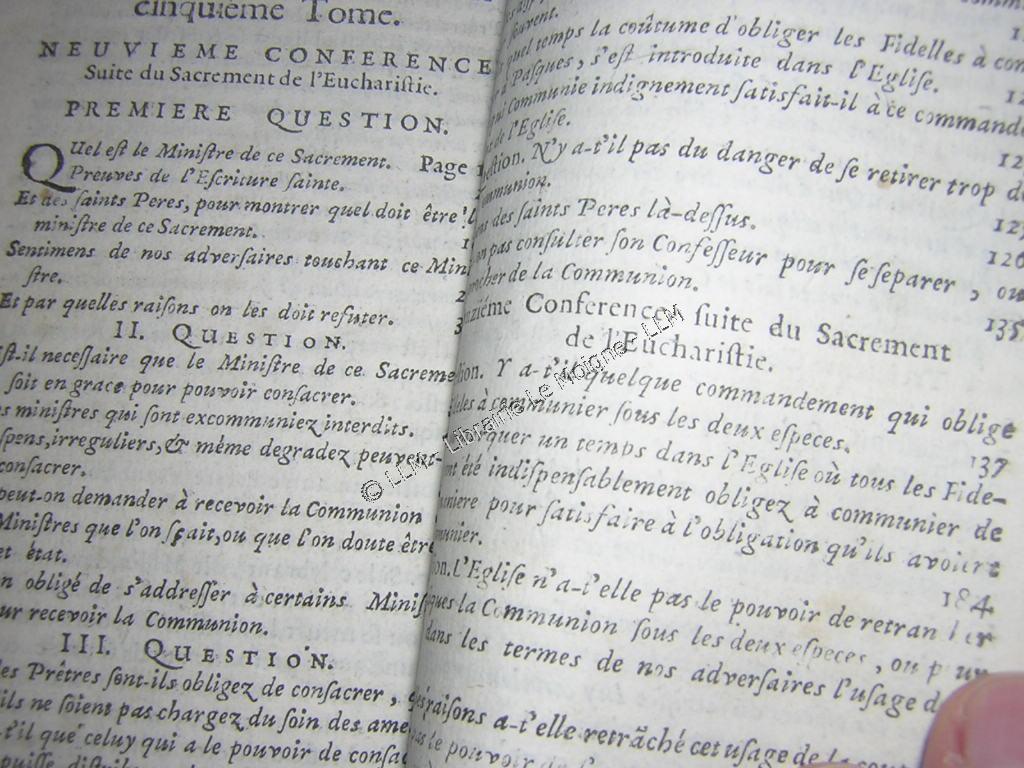 cinquiéme Tome.
NEUVIEME CONFERENCE
Suite du Sacrement de l'Euchariſtie.
PREMIERE QUESTION.
QUel eſt le Miniſtre de ce Sacrement. Page
Preuves de l'Eſcriture ſainte.
Et des ſaints Peres, pour montrer quel doit être l
miniſtre de ce Sacrement.
Sentimens de nos adverſaires touchant ce Mini
ſtre. 2
Et par quelles raiſons on les doit refuter. 3
II. QUESTION.
ſt-il neceſſaire que le Miniſtre de ce Sacreme
ſoit en grace pour pouvoir conſacrer.
s miniſtres qui ſont excommuniez interdits,
ſpens, irreguliers, & même degradez peuvent-
conſacrer.
peut-on demander à recevoir la Communion
Miniſtres que l'on ſçait, ou que l'on doute être
et état.
n obligé de s'addreſſer à certains Miniſ
ur recevoir la Communion.
III. QUESTION.
les Prêtres ſont-ils obligez de conſacrer,
ils ne ſoient pas chargez du ſoin des ame
t'il que celuy qui a le pouvoir de conſac
ſouvent.
quel temps la coûtume d'obliger les Fidelles à com
à Paſques, s'eſt introduite dans l'Egliſe.
ui Communie indignement ſatisfait-il à ce commande
t de l'Egliſe.
eſtion. N'y a-t'il pas du danger de ſe retirer trop de
mmunion.
ns des ſaints Peres là-deſſus. 125
on pas conſulter ſon Confeſſeur pour ſe ſeparer, ou 126
rocher de la Communion. 135
nziéme Conference, ſuite du Sacrement
de l'Euchariſtie.
tion. Y a-t'il quelque commandement qui oblige
elles à communier ſous les deux eſpeces. 137
quer un temps dans l'Egliſe où tous les Fide-
nt été indiſpenſablement obligez à communier de
aniere pour ſatisfaire à l'obligation qu'ils avoient
munier. 184
ion. L'Egliſe n'a-t'elle pas le pouvoir de retrancher
ques la Communion ſous les deux eſpeces, ou pour
dans les termes de nos adverſaires l'uſage d
raiſons a-t'elle retrāché cet uſage de la cou
pas le pouvoir
© LLM - Librairie Le Moigne - LLM